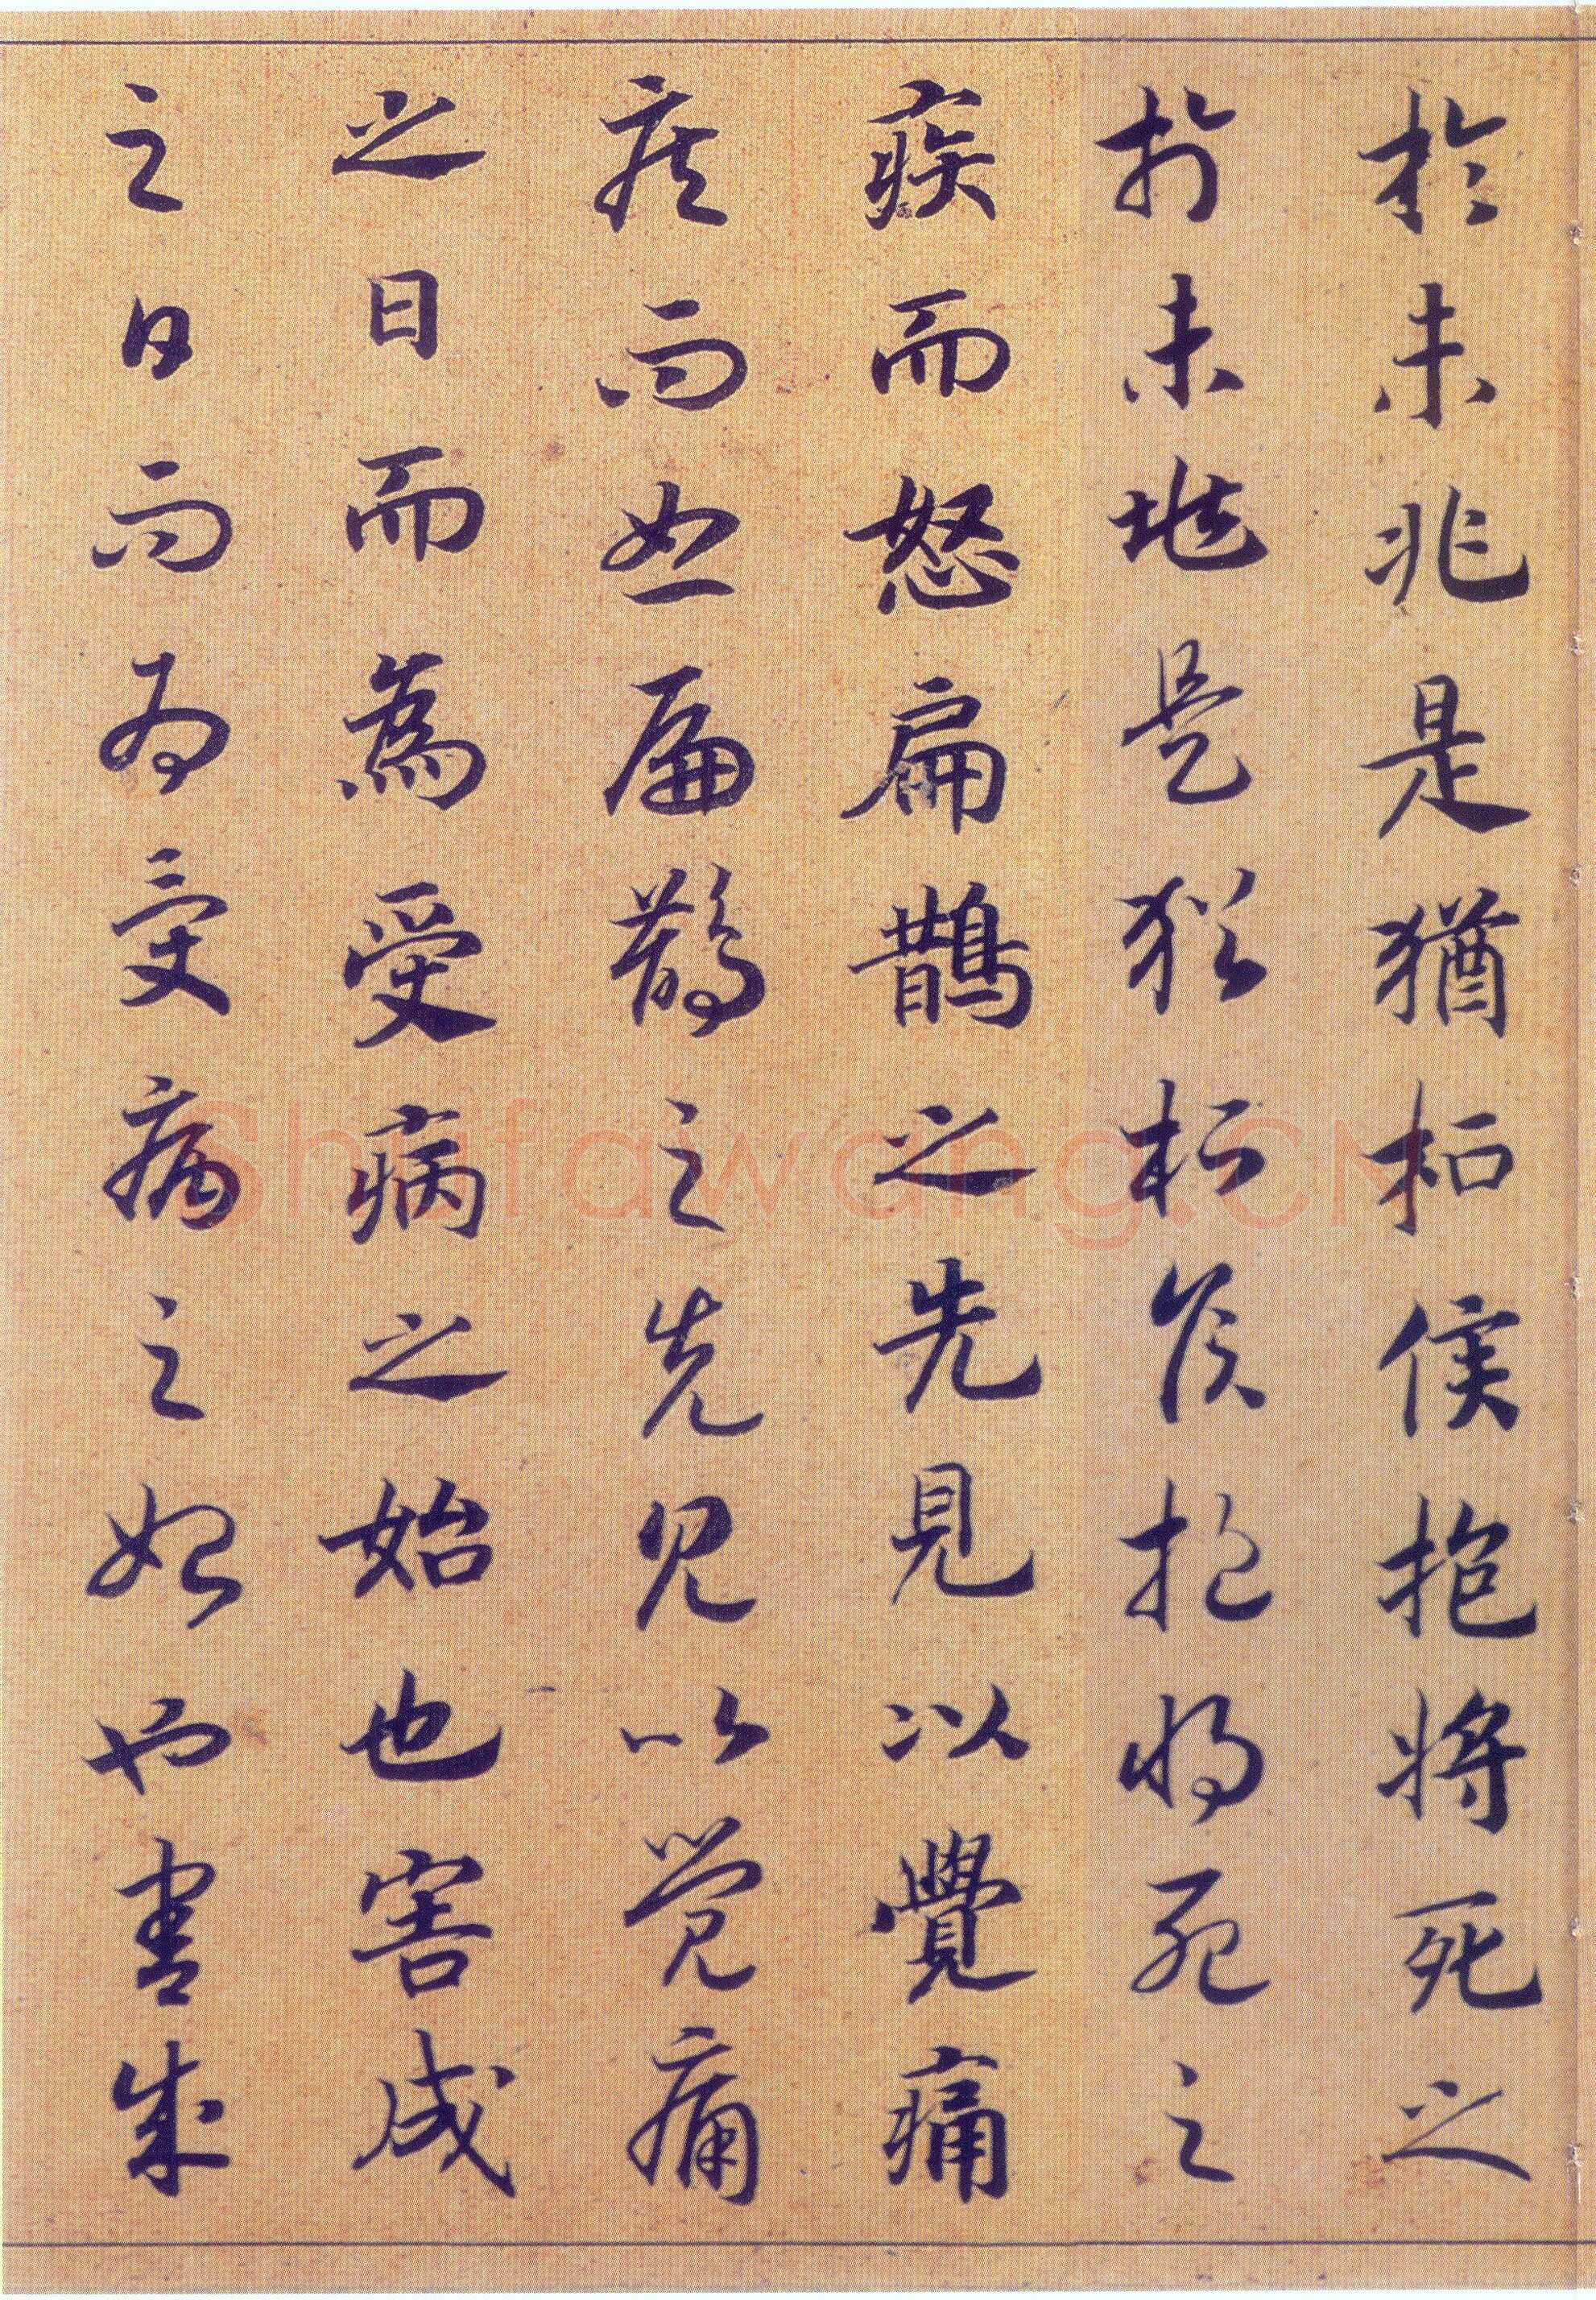 於未兆是猶桓侯抱將死之
於未兆是猶桓侯抱將死之
疾而怒扁鵲之先見以覺痛
疾而怒扁鵲之先見以覺痛
之日而為受病之始也害成
之日而為受病之始也害成
Shufawang.CN